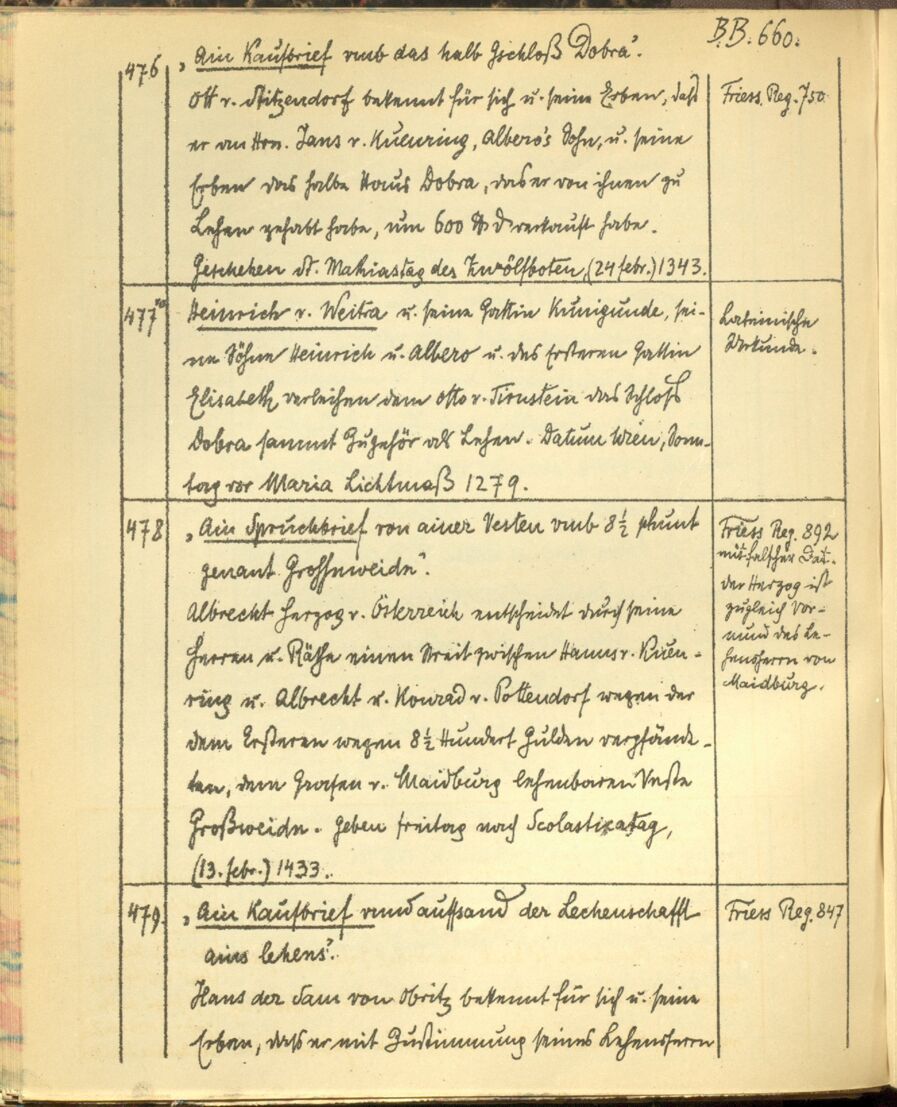 B.B. 660.
476
„Ain Kaufbrief vmb das halb Gschloß Dobra“.
Ott v. Stitzendorf bekennt für sich u. seine Erben, daß
er an Hrn. Jans v. Kuenring, Albero's Sohn, u. seine
Erben das halbe Haus Dobra, das er von ihnen zu
Lehen gehabt habe, um 600 ℔ D verkauft habe.
Geschehen St. Mathiastag des Zwölfboten, (24 febr.) 1343.
Friess. Reg. 750
477
Heinrich v. Weitra u. seine Gattin Kunigunde, sei-
ne Söhne Heinrich u. Albero u. des Ersteren Gattin
Elisabeth verleihen dem Otto v. Tirnstein das Schloß
Dobra sammt Zugehör als Lehen. Datum Wien, Sonn-
tag vor Maria Lichtmaß 1279.
Lateinische
Urkunde.
478
„Ain Spruchbrief von ainer Vesten vmb 8½ phunt
genant Grossnweidn“.
Albrecht Herzog v. Österreich entscheidet durch seine
Herren u. Räthe einen Streit zwischen Hanns v. Kuen-
ring u. Albrecht u. Konrad v. Pottendorf wegen der
dem Ersteren wegen 8½ Hundert Gulden verpfände-
ten, dem Grafen v. Maidburg lehenbaren Veste
Großweidn. Geben freitag nach Scolasticatag,
(13. febr.) 1433.
Friess Reg. 892
mit falscher Dat.
der Herzog ist
zugleich Vor-
mund des Le-
hensherrn von
Maidburg.
479.
„Ain Kaufbrief vnd auffsand der Lechenschafft
ains lehens“.
Hans der Sam von Obritz bekennt für sich u. seine
Erben, daß er mit Zustimmung seines Lehensherrn
Friess Reg. 847